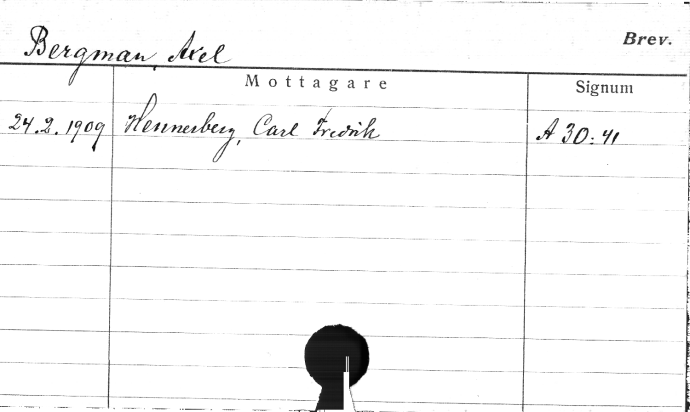 Brev.
Bergman, Axel
Mottagare Signum
24.2.1909 Hennerberg, Carl Fredrik A 30:41